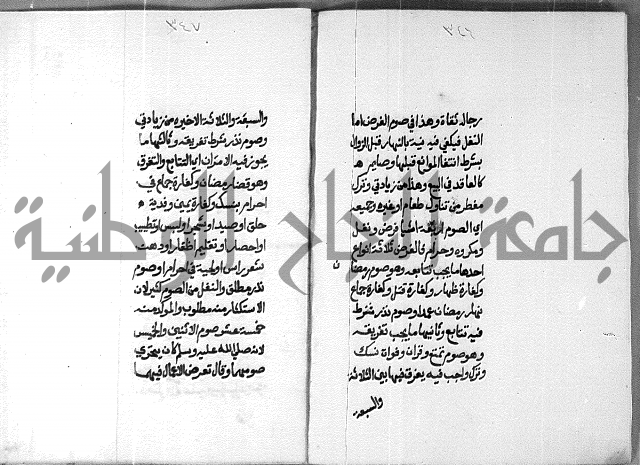 ٣٤٦
رجاله ثقاة وهذا في صوم الفرض اما
النفل فيكفي فيه نية بالنهار قبل الزوال
بشرط انتفا الموانع قبلها وصايم
كالعاقد في البيع وهذا من زيادتي وترك
مفطر من تناول طعام او غيره وجميعه
اي الصوم اربعة اشيا فرض ونفل
ومكروه وحرام فالفرض ثلاثة انواع
احدها ما يجب تتابعه وهو صوم رمضان
وكفارة ظهار وكفارة قتل وكفارة جماع
نهار رمضان عمدا وصوم نذر شرط
فيه تتابع وثانيها ما يجب تفريقه
وهو صوم تمتع وقران وفوات نسك
وترك واجب فيه يفرق فيها بين الثلاثة
والسبعة
٣٤٧
والسبعة والثلاثة الاخيره من زيادتي
وصوم نذر شرط تفريقه وثالثها ما
يجوز فيه الامران اي التتابع والتفرق
وهو قضا رمضان وكفارة جماع في
احرام بنسك وكفارة يمين وفدية
حلق او صيد او شجر او لبس او تطيب
او احصار او تقليم اظفار او دهن
شعر راس او لحية في احرام وصوم
نذر مطلق والنفل من الصوم كثير لان
الاستكثار منه مطلوب والمؤكد منه
خمسة عشر صوم الاثنين والخميس
لانه صلي الله عليه وسلم كان يتحري
صومهما وقال تعرض الاعمال فيهما
جامعة النجاح الوطنية